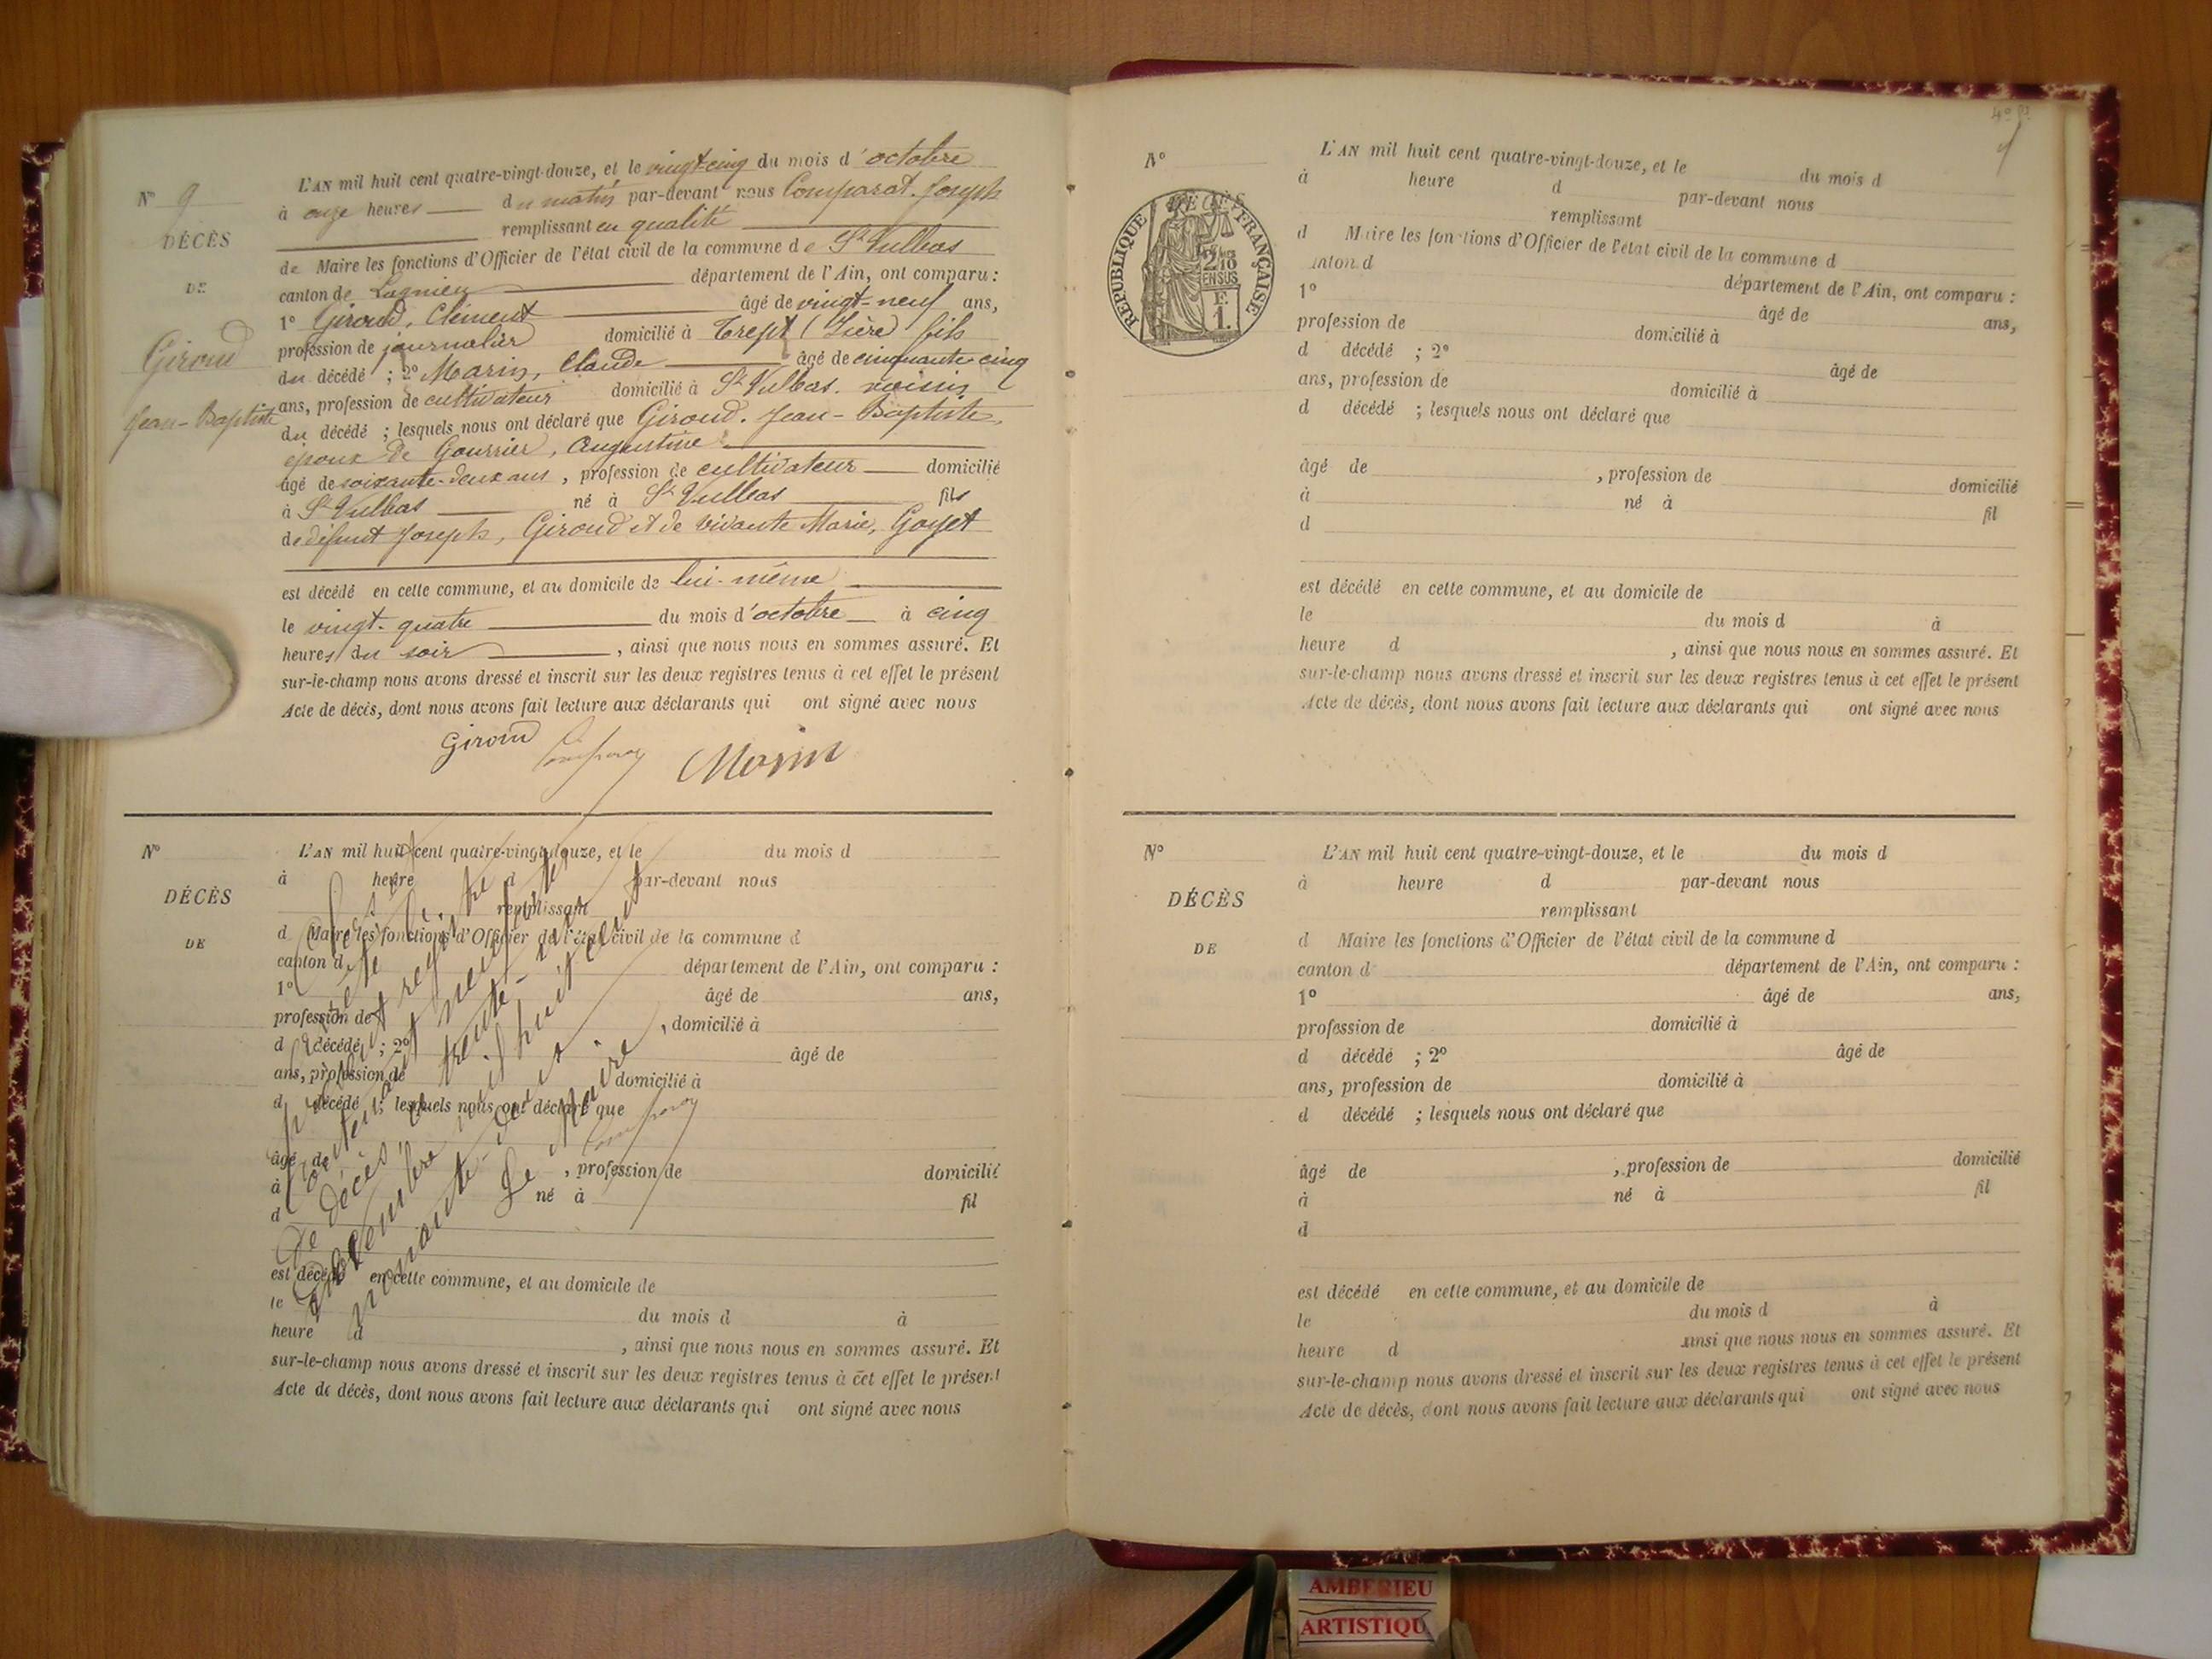 N° 9
DÉCÈS
DE
Giroud
Jean-Baptiste
L'AN mil huit cent quatre-vingt-douze, et le vingt-cinq du mois d'octobre
à onze heures du matin par-devant nous Comparat. Joseph
remplissant en qualité
de Maire les fonctions d'Officier de l'état civil de la commune de St Vulbas
canton de Lagnieu département de l'Ain, ont comparu :
1° Giroud, Clément âgé de vingt-neuf ans,
profession de journalier domicilié à Trept (Isère) fils
du décédé ; 2° Marin, Claude âgé de cinquante-cinq
ans, profession de cultivateur domicilié à St Vulbas. voisin
du décédé ; lesquels nous ont déclaré que Giroud. Jean-Baptiste,
époux de Gourrier, Augustine
âgé de soixante-deux ans, profession de cultivateur domicilié
à St Vulbas né à St Vulbas fils
de défunt Joseph, Giroud et de vivante Marie, Goyet
est décédé en cette commune, et au domicile de lui-même
le vingt-quatre du mois d'octobre à cinq
heures du soir, ainsi que nous nous en sommes assuré. Et
sur-le-champ nous avons dressé et inscrit sur les deux registres tenus à cet effet le présent
Acte de décès, dont nous avons fait lecture aux déclarants qui ont signé avec nous
Giroud Marin
N°
DÉCÈS
DE
L'AN mil huit cent quatre-vingt-douze, et le du mois d
à heure d par-devant nous
remplissant
d Maire les fonctions d'Officier de l'état civil de la commune d
canton d département de l'Ain, ont comparu :
1° âgé de ans,
profession de , domicilié à
d décédé ; 2° âgé de
ans, profession de domicilié à
d décédé ; lesquels nous ont déclaré que
âgé de , profession de domicilié
à né à fil
d
est décédé en cette commune, et au domicile de
le du mois d à
heure d , ainsi que nous nous en sommes assuré. Et
sur-le-champ nous avons dressé et inscrit sur les deux registres tenus à cet effet le présent
Acte de décès, dont nous avons fait lecture aux déclarants qui ont signé avec nous
présent registre
contenant neuf actes
de décès, trente-un
décembre mil huit cent
nonante-deux.
Le Maire
N°
DÉCÈS
RÉPUBLIQUE FRANÇAISE
2/10
EN SUS
F.
1.
L'AN mil huit cent quatre-vingt-douze, et le du mois d
à heure d par-devant nous
remplissant
d Maire les fonctions d'Officier de l'état civil de la commune d
anton d département de l'Ain, ont comparu :
1° âgé de ans,
profession de domicilié à
d décédé ; 2° âgé de
ans, profession de domicilié à
d décédé ; lesquels nous ont déclaré que
âgé de , profession de domicilié
à né à fil
d
est décédé en cette commune, et au domicile de
le du mois d à
heure d , ainsi que nous nous en sommes assuré. Et
sur-le-champ nous avons dressé et inscrit sur les deux registres tenus à cet effet le présent
Acte de décès, dont nous avons fait lecture aux déclarants qui ont signé avec nous
N°
DÉCÈS
DE
L'AN mil huit cent quatre-vingt-douze, et le du mois d
à heure d par-devant nous
remplissant
d Maire les fonctions d'Officier de l'état civil de la commune d
canton d département de l'Ain, ont comparu :
1° âgé de ans,
profession de domicilié à
d décédé ; 2° âgé de
ans, profession de domicilié à
d décédé ; lesquels nous ont déclaré que
âgé de , profession de domicilié
à né à fil
d
est décédé en cette commune, et au domicile de
le du mois d à
heure d ainsi que nous nous en sommes assuré. Et
sur-le-champ nous avons dressé et inscrit sur les deux registres tenus à cet effet le présent
Acte de décès, dont nous avons fait lecture aux déclarants qui ont signé avec nous
AMBERIEU
ARTISTIQU